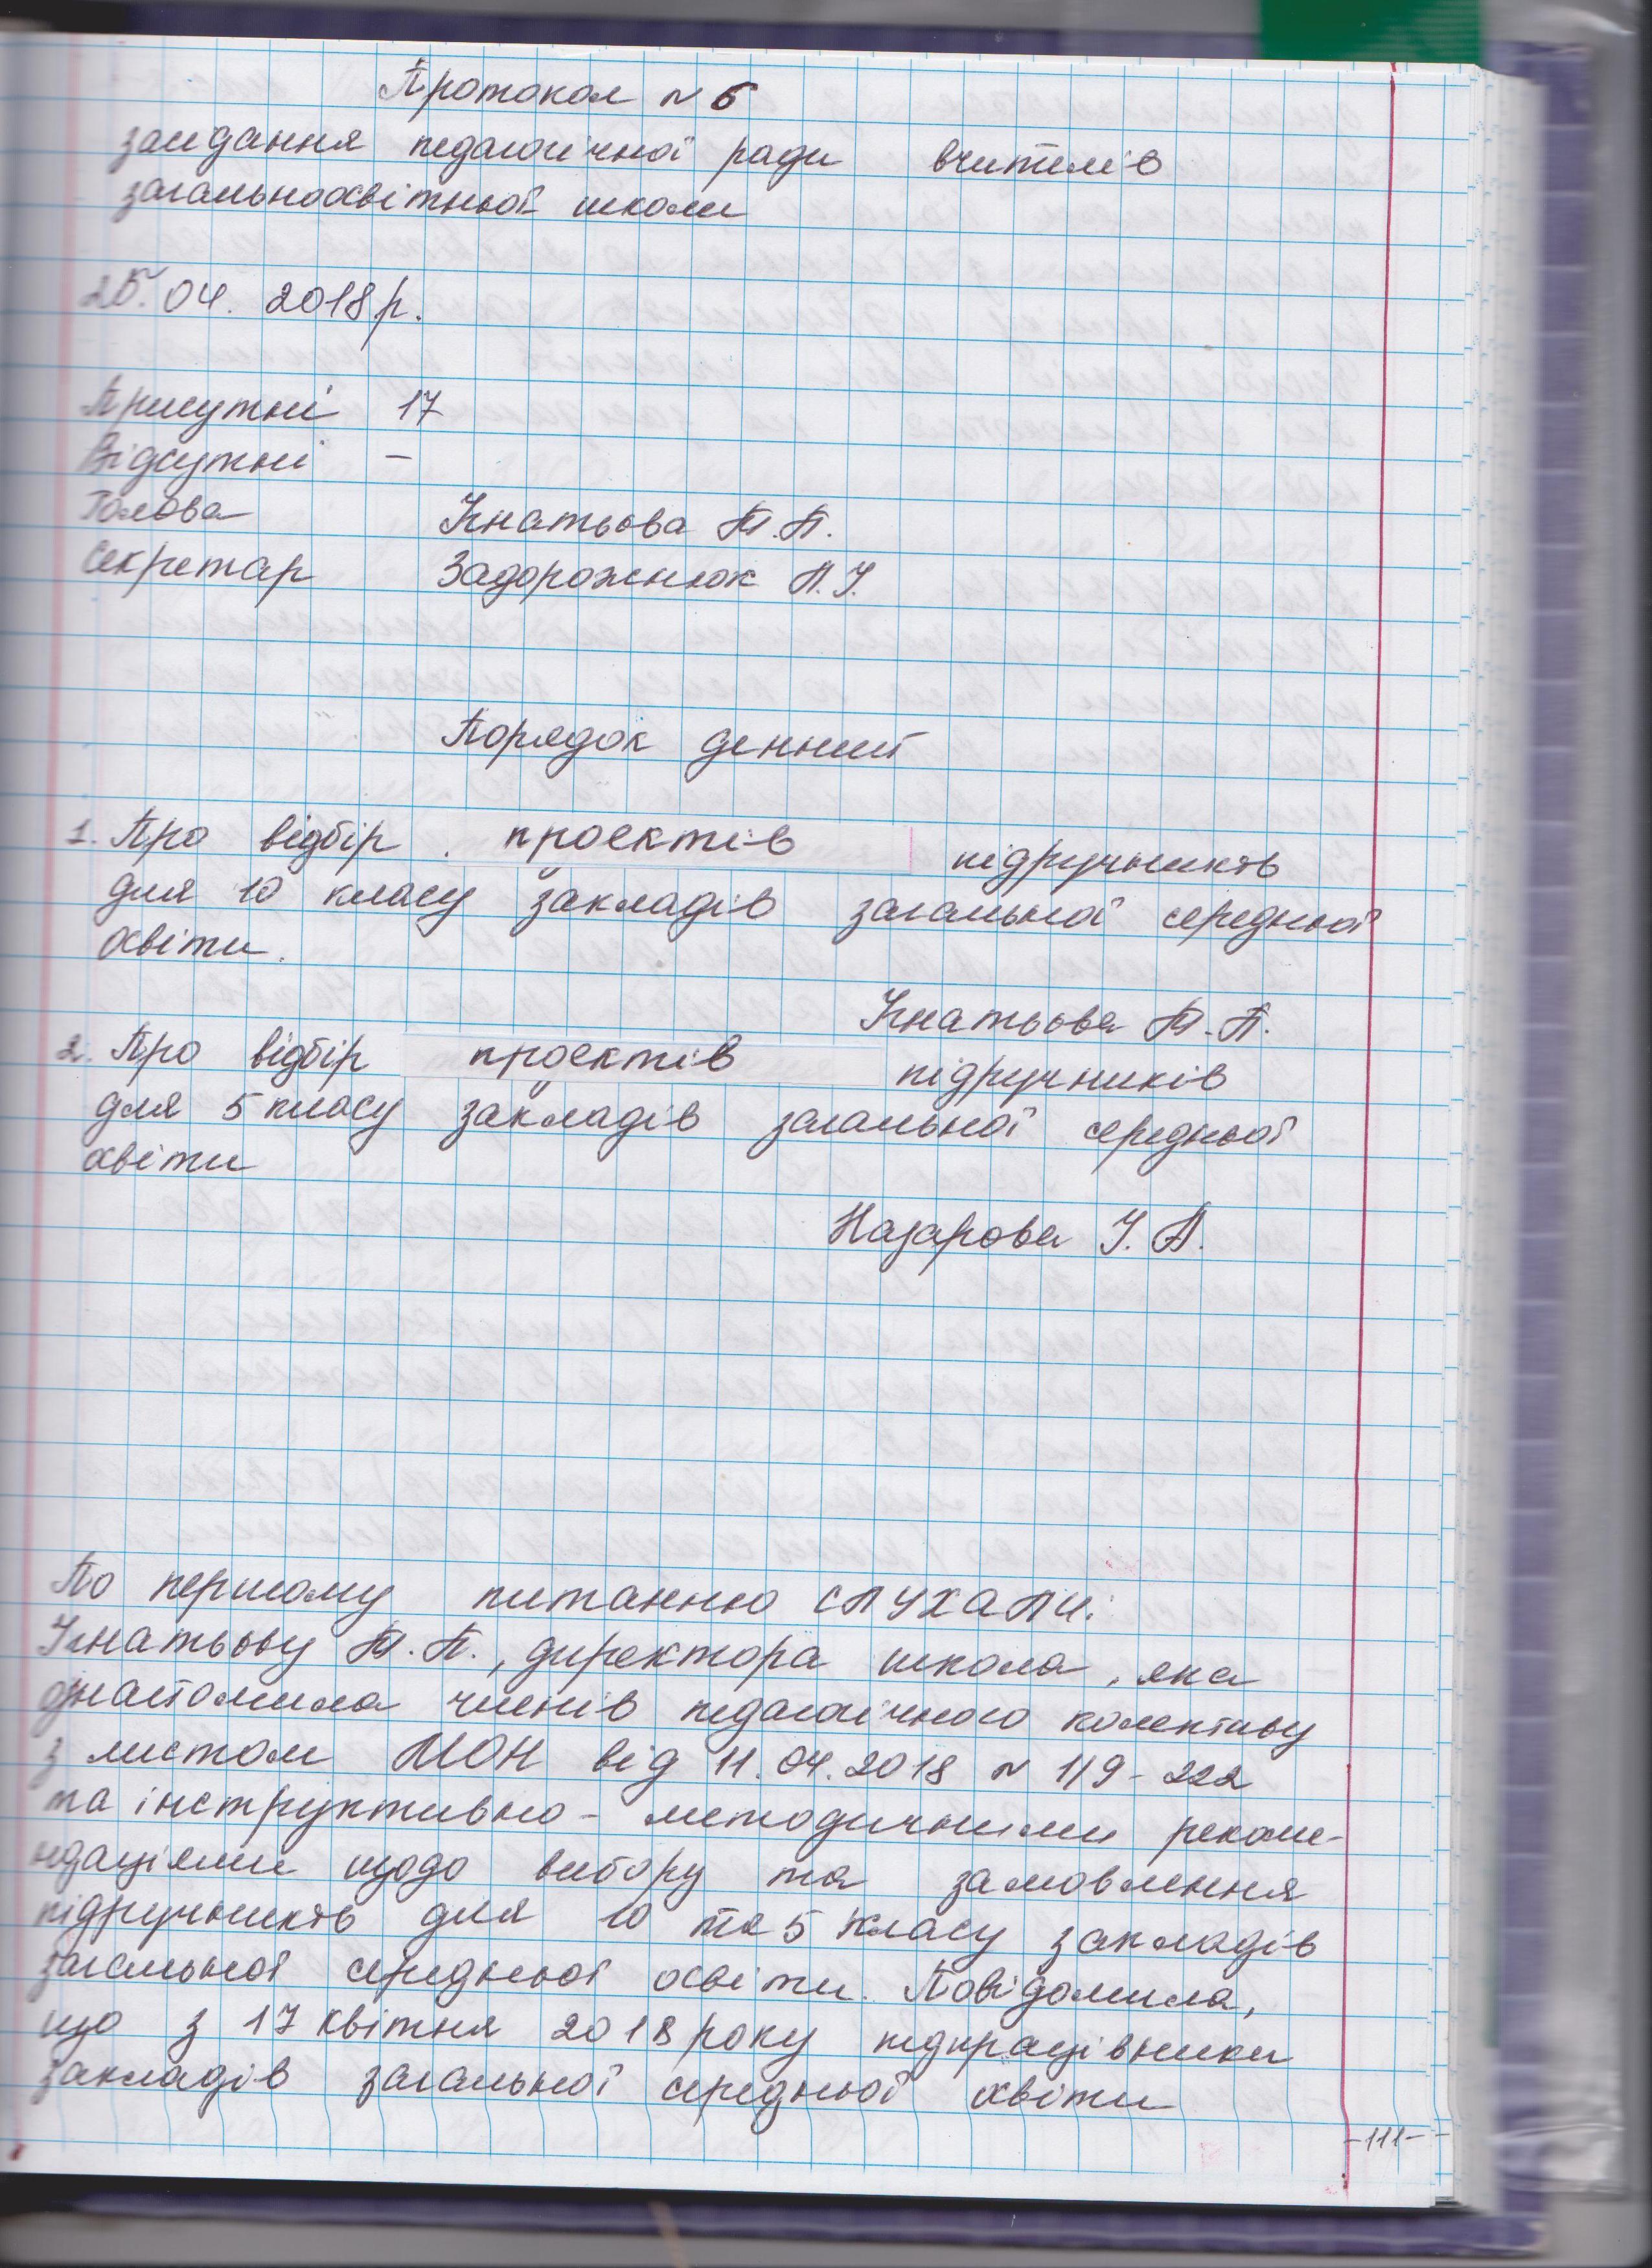 Протокол № 6
засідання педагогічної ради вчителів
загальноосвітньої школи
25.04.2018р.
Присутні 17
Відсутні –
Голова Ігнатьова Т.П.
Секретар Задорожнюк Л.І.
Порядок денний
1. Про відбір проектів підручників
для 10 класу закладів загальної середньої
освіти.
Ігнатьова Т.П.
2. Про відбір проектів підручників
для 5 класу закладів загальної середньої
освіти
Назарова І. А.
По першому питанню СЛУХАЛИ:
Ігнатьову Т.П., директора школа, яка
ознайомила членів педагогічного колективу
з листом МОН від 11.04.2018 № 1/9-222
та інструктивно-методичними рекоме-
ндаціями щодо вибору та замовлення
підручників для 10 та 5 класу закладів
загальної середньої освіти. Повідомила,
що з 17 квітня 2018 року педпрацівники
закладів загальної середньої освіти
-111-